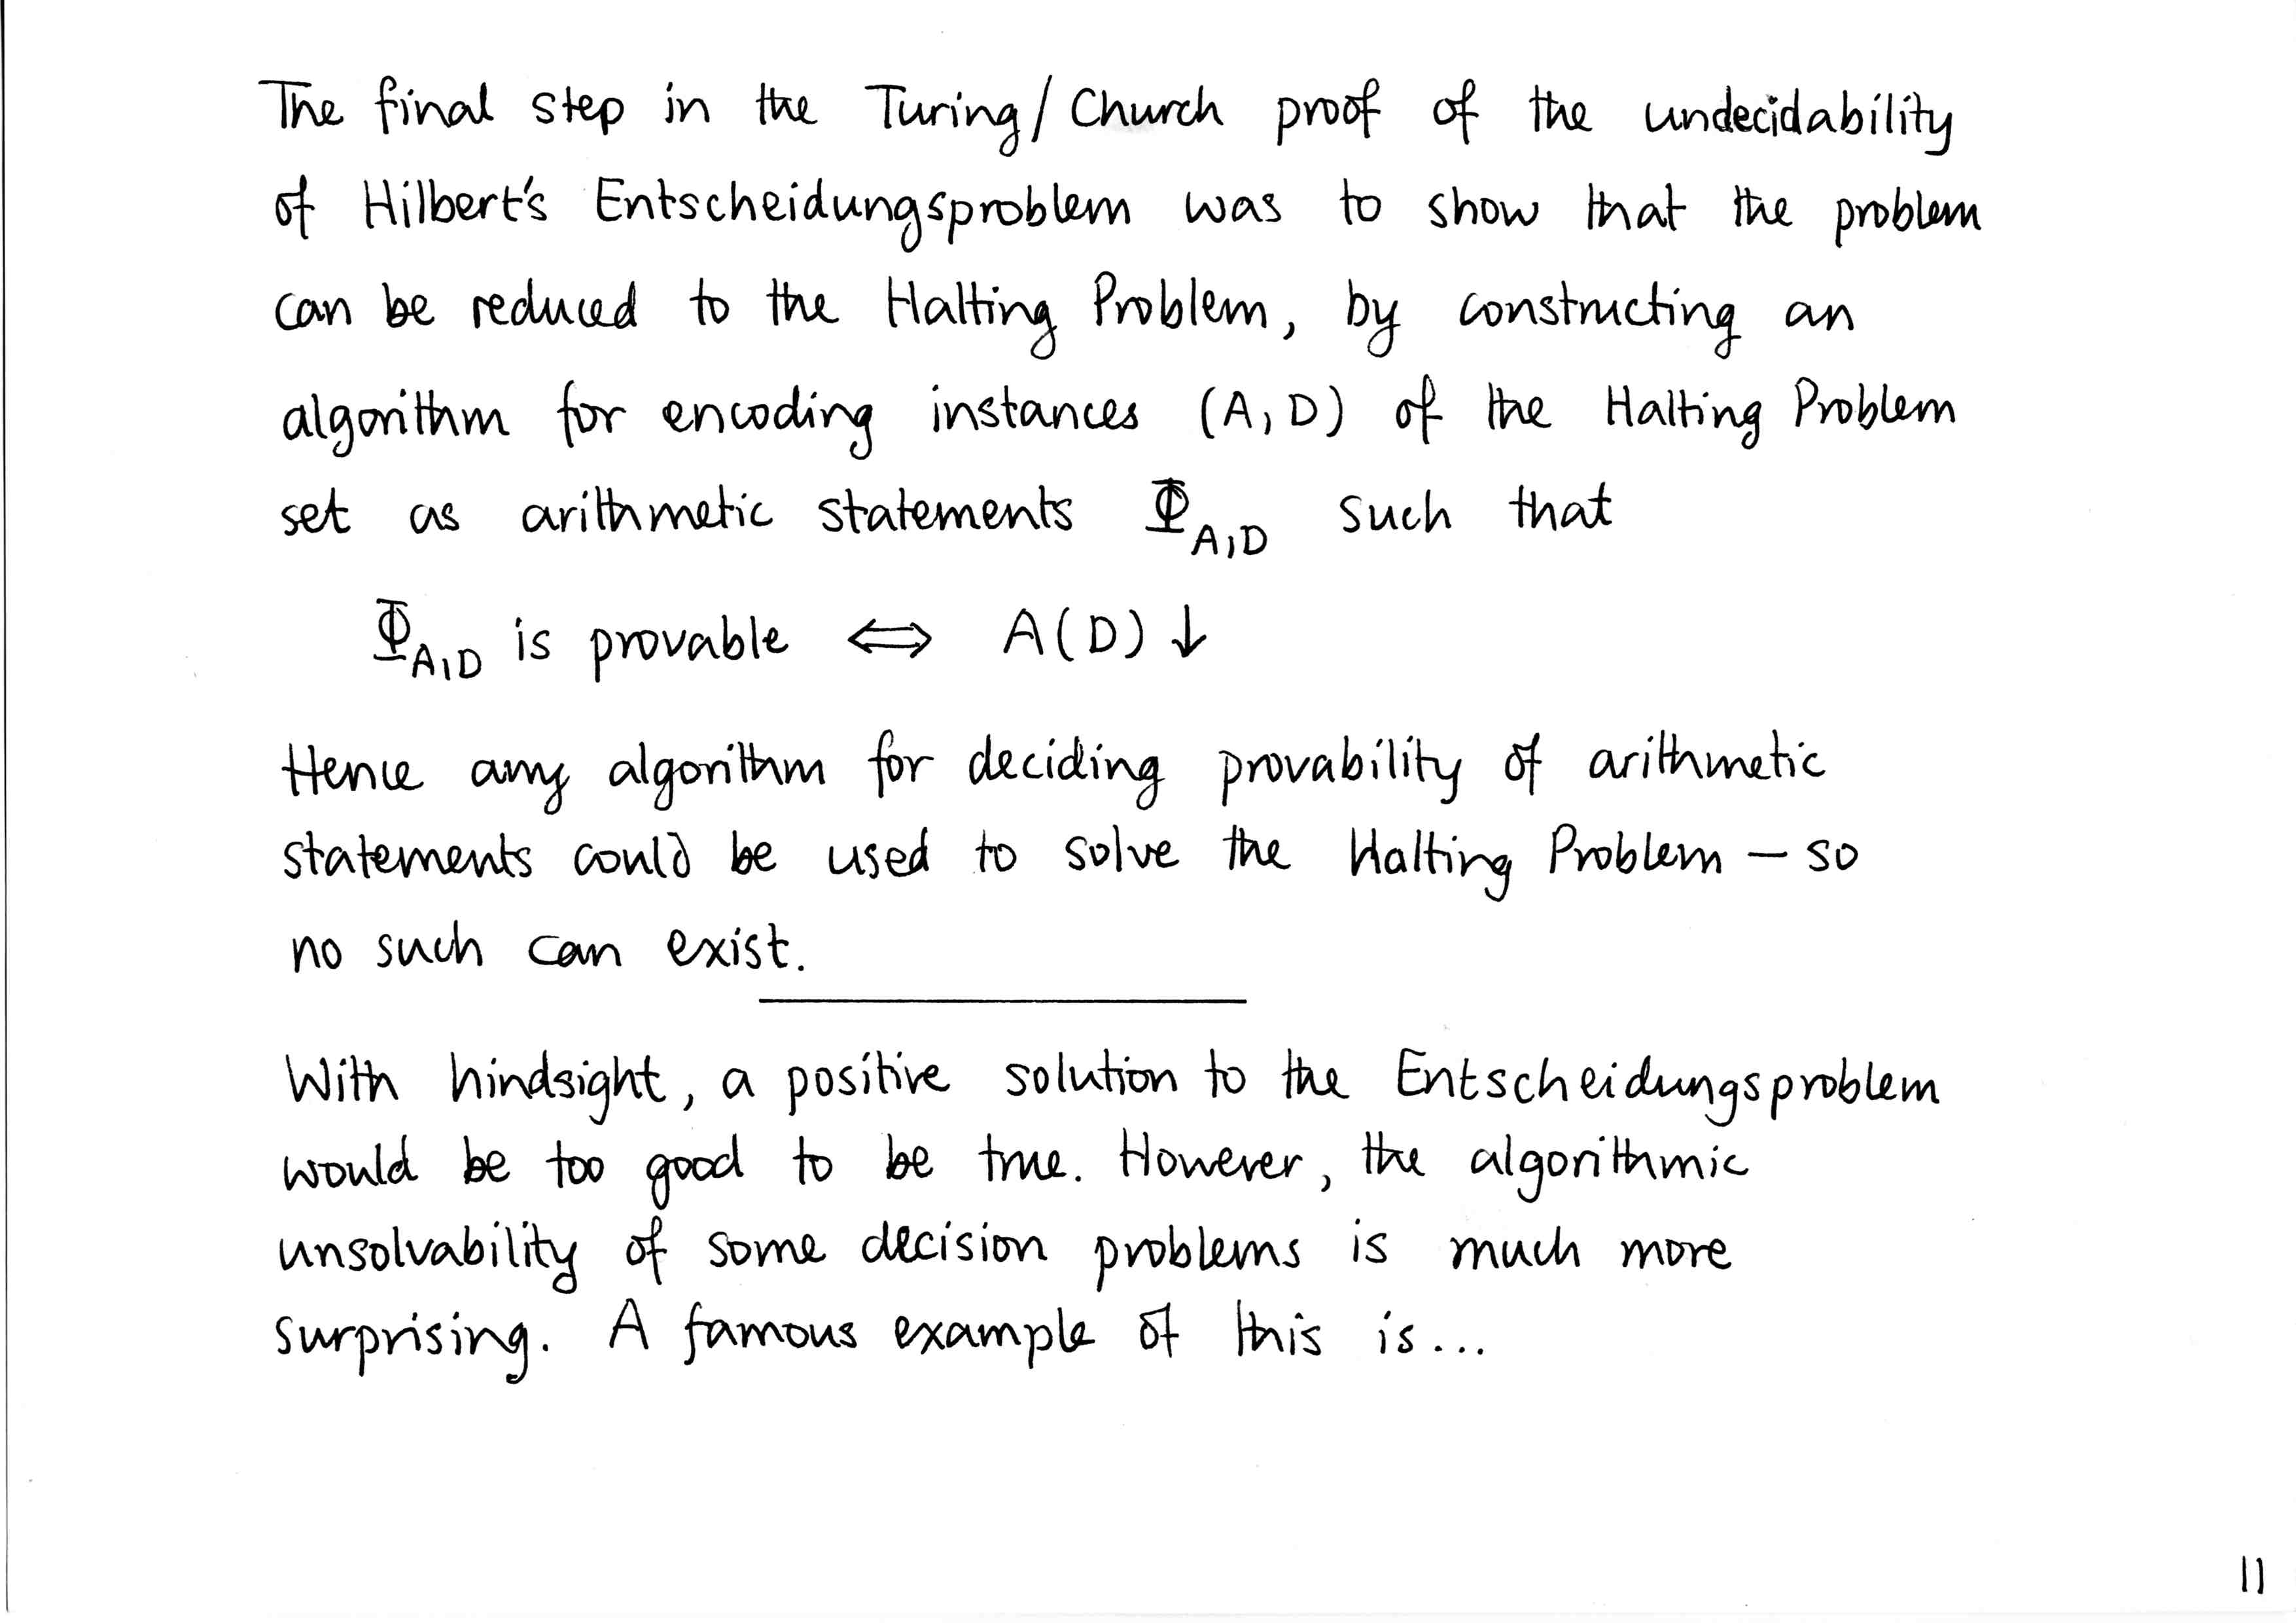 The final step in the Turing/Church proof of the undecidability
of Hilbert's Entscheidungsproblem was to show that the problem
can be reduced to the Halting Problem, by constructing an
algorithm for encoding instances (A,D) of the Halting Problem
set as arithmetic statements Φ_A,D such that
Φ_A,D is provable ⟺ A(D)↓
Hence any algorithm for deciding provability of arithmetic
statements could be used to solve the Halting Problem — so
no such can exist.
With hindsight, a positive solution to the Entscheidungsproblem
would be too good to be true. However, the algorithmic
unsolvability of some decision problems is much more
surprising. A famous example of this is...
11